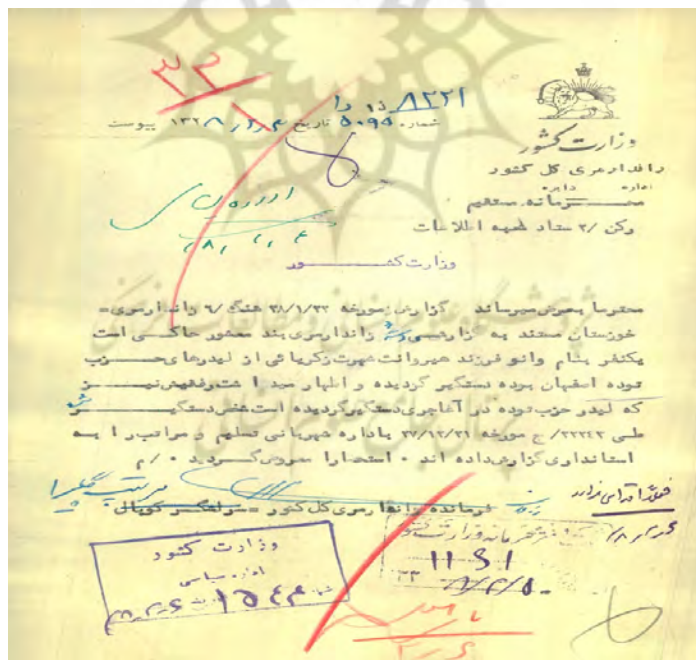 ۳۲
۸۲۲۱
شماره ۵۰۹۵ تاریخ ۱۳۲۸ پیوست
وزارت کشور
ژاندارمری کل کشور
اداره دایره
محرمانه مستقیم
رکن /۲ ستاد شعبه اطلاعات
وزارت کشور
محترما بعرض میرساند گزارش مورخه ۲۸/۱/۲۲ هنگ /۶ ژاندارمری
خوزستان مستند به گزارش ژاندارمری بندر معشور حاکی است
یکنفر بنام وانو فرزند هیروانت شهرت زکریائی از لیدرهای حزب
توده اصفهان بوده دستگیر گردیده و اظهار میداشت رفیقش نیز
که لیدر حزب توده در آغاجری دستگیر گردیده است شخص دستگیر شده
طی ۲۲۲۴۲/ ج مورخه ۲۷/۱۲/۲۱ باداره شهربانی تسلیم و مراتب را به
استانداری گزارش داده اند ۰ استحضارا معروض گردید ۰ /م
فرمانده ژاندارمری کل کشور - سرلشکر کوپال
فعلا اقدامی ندارد
دفتر محرمانه وزارت کشور
۱۱۵۱
وزارت کشور
اداره سیاسی
۱۵۴۴